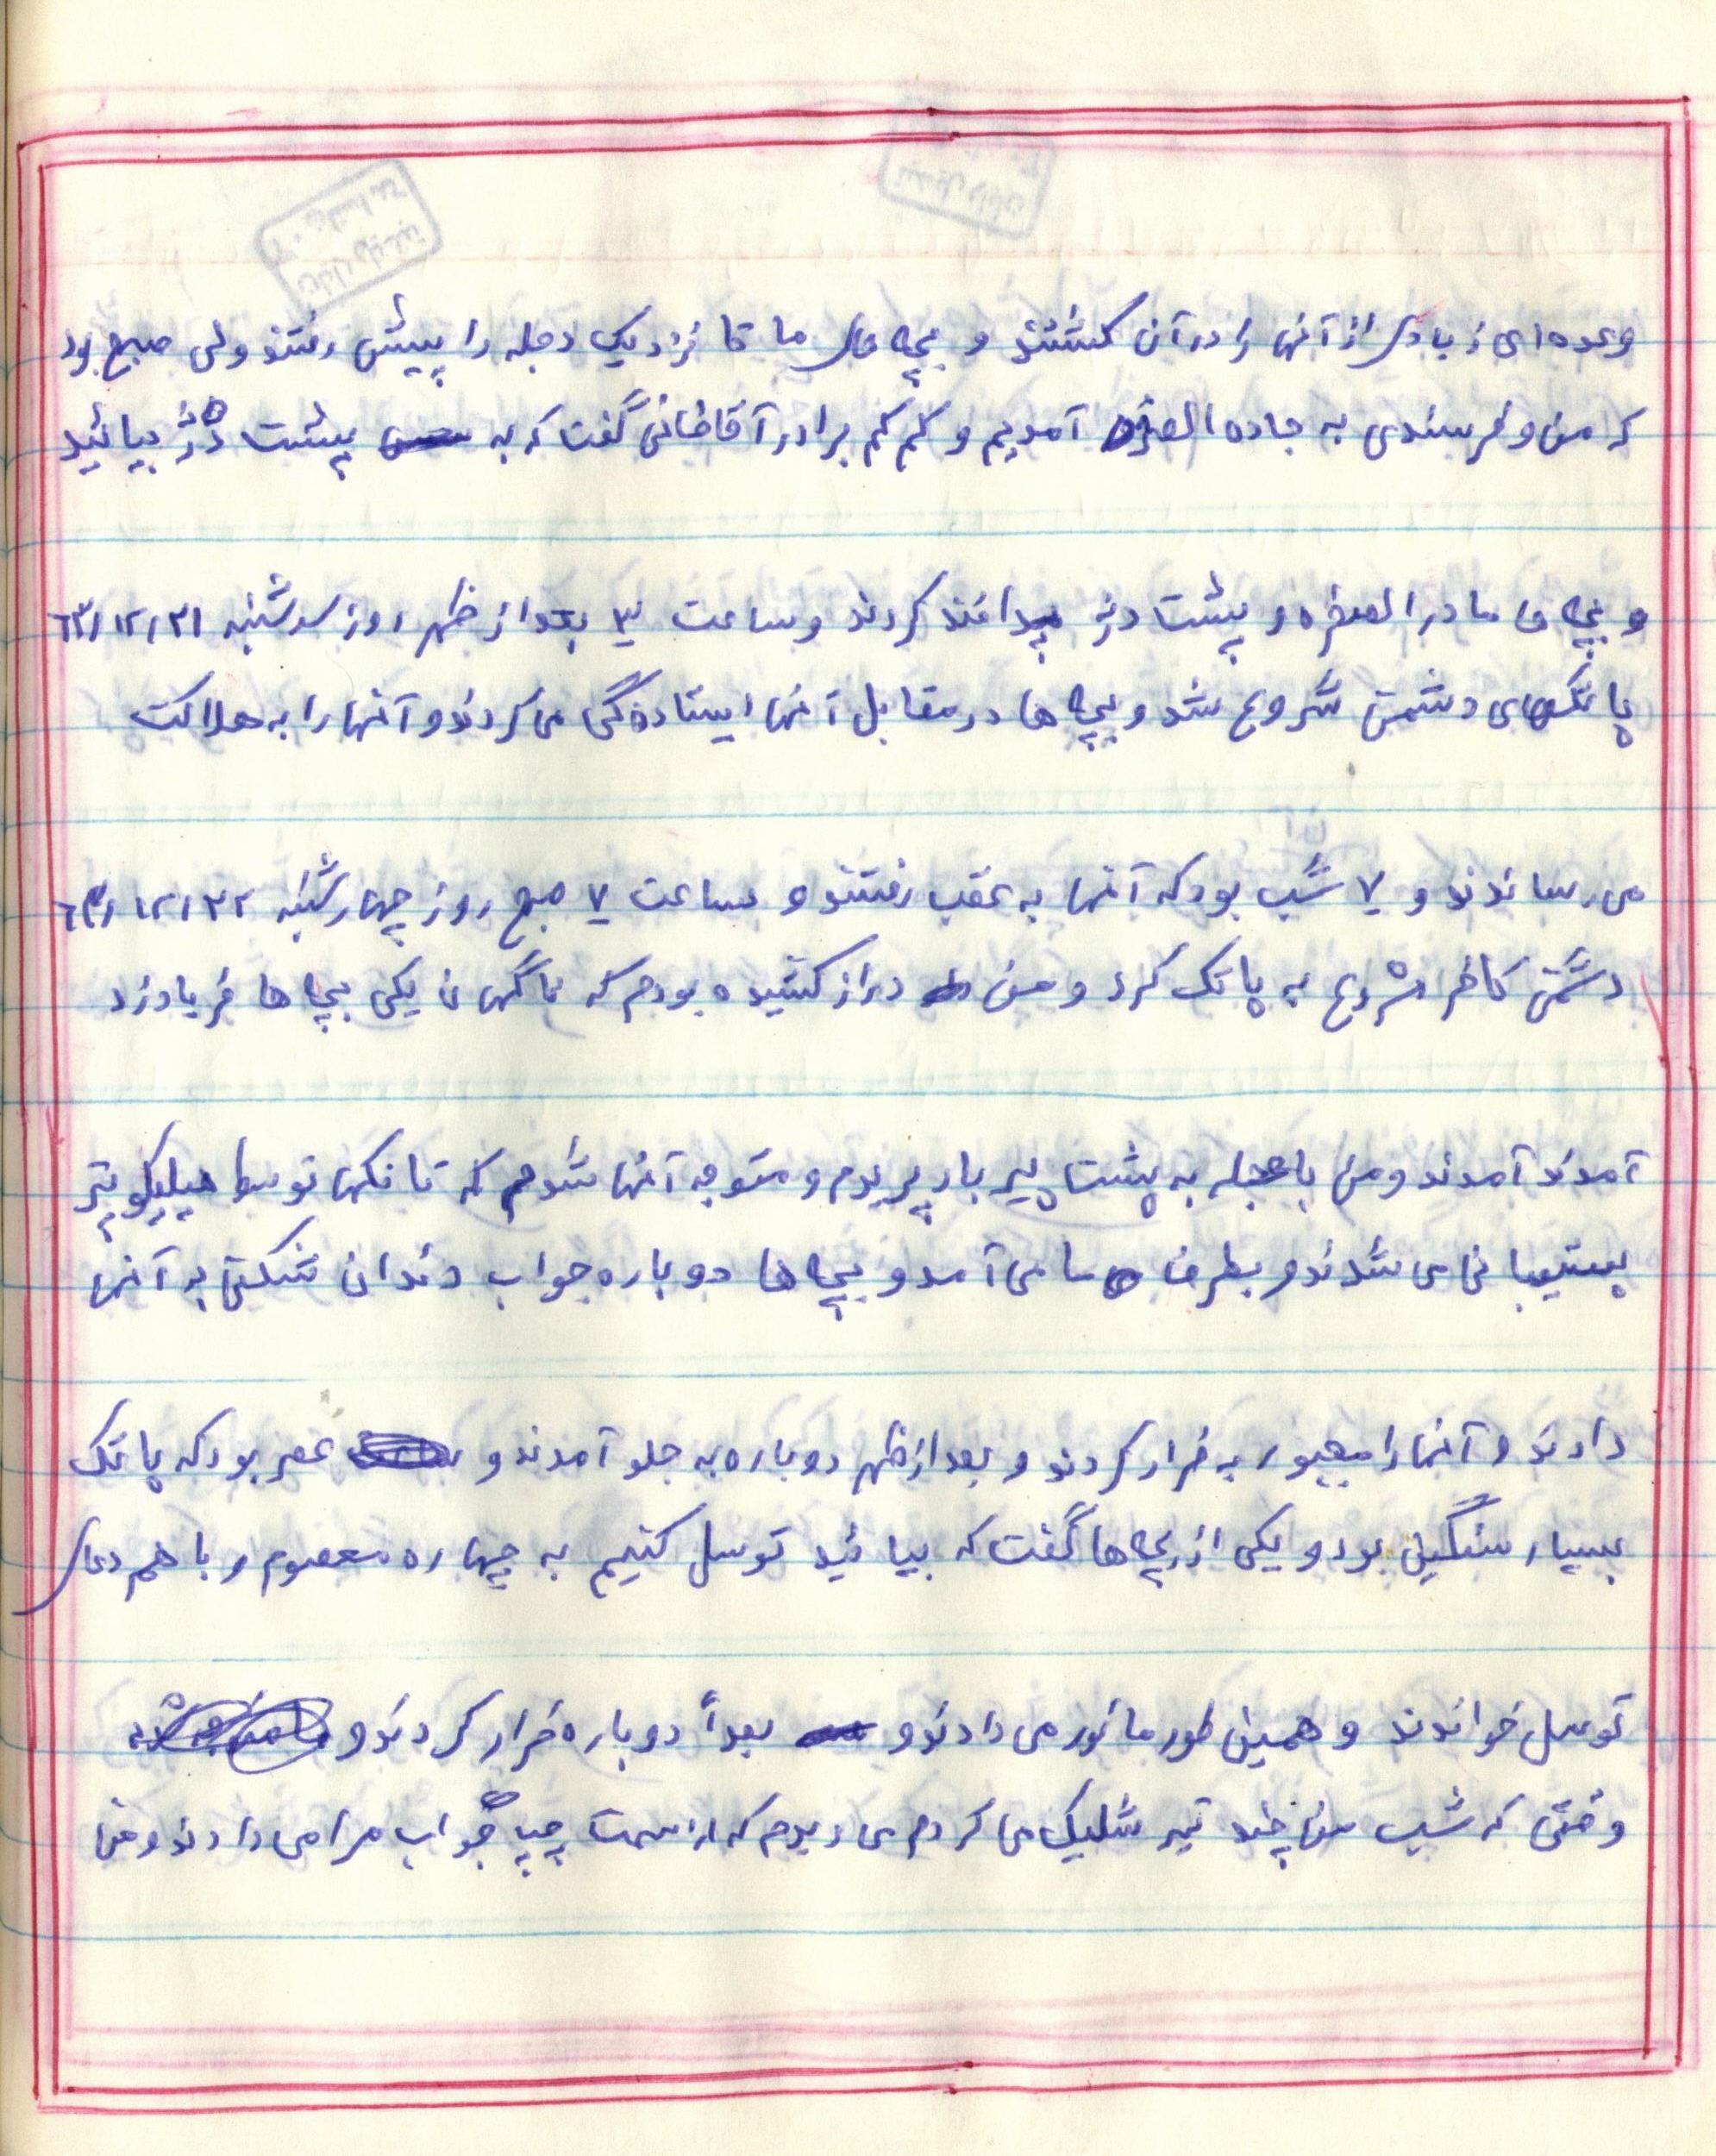 وعده‌ای زیادی از آنها را در آن کشتند و بچه های ما تا نزدیک دجله را پیش رفتند ولی صبح بود
که من و خرسندی به جاده العزیر آمدیم و کم کم برادر آقاخانی گفت که به پشت دژ بیائید
و بچه ها ما در العزیر و پشت دژ پدافند کردند و ساعت ۳ بعد از ظهر روز سه شنبه ۶۳/۱۲/۲۱
پاتکهای دشمن شروع شد و بچه ها در مقابل آنها ایستاده‌گی می کردند و آنها را به هلاکت
می رساندند و ۷ شب بود که آنها به عقب رفتند و ساعت ۷ صبح روز چهارشنبه ۶۳/۱۲/۲۲
دشمن کافر شروع به پاتک کرد و من دراز کشیده بودم که ناگهان یکی بچا ها فریاد زد
آمدند آمدند و من با عجله به پشت پریدم و متوجه آنها شدم که تانکها توسط هیلیکوپتر
پشتیبانی می شدند و بطرف ما می آمد و بچا ها دوباره جواب دندان شکنی به آنها
دادند و آنها را مجبور به فرار کردند و بعد از ظهر دوباره به جلو آمدند و عصر بود که پاتک
بسیار سنگین بود و یکی از بچه ها گفت که بیائید توسل کنیم به چهارده معصوم و با هم دعای
توسل خواندند و همین طور مانور می دادند و بعداً دوباره فرار کردند و
وقتی که شب من چند تیر شلیک می کردم می دیدم که از سمت چپ جواب مرا می دادند و من